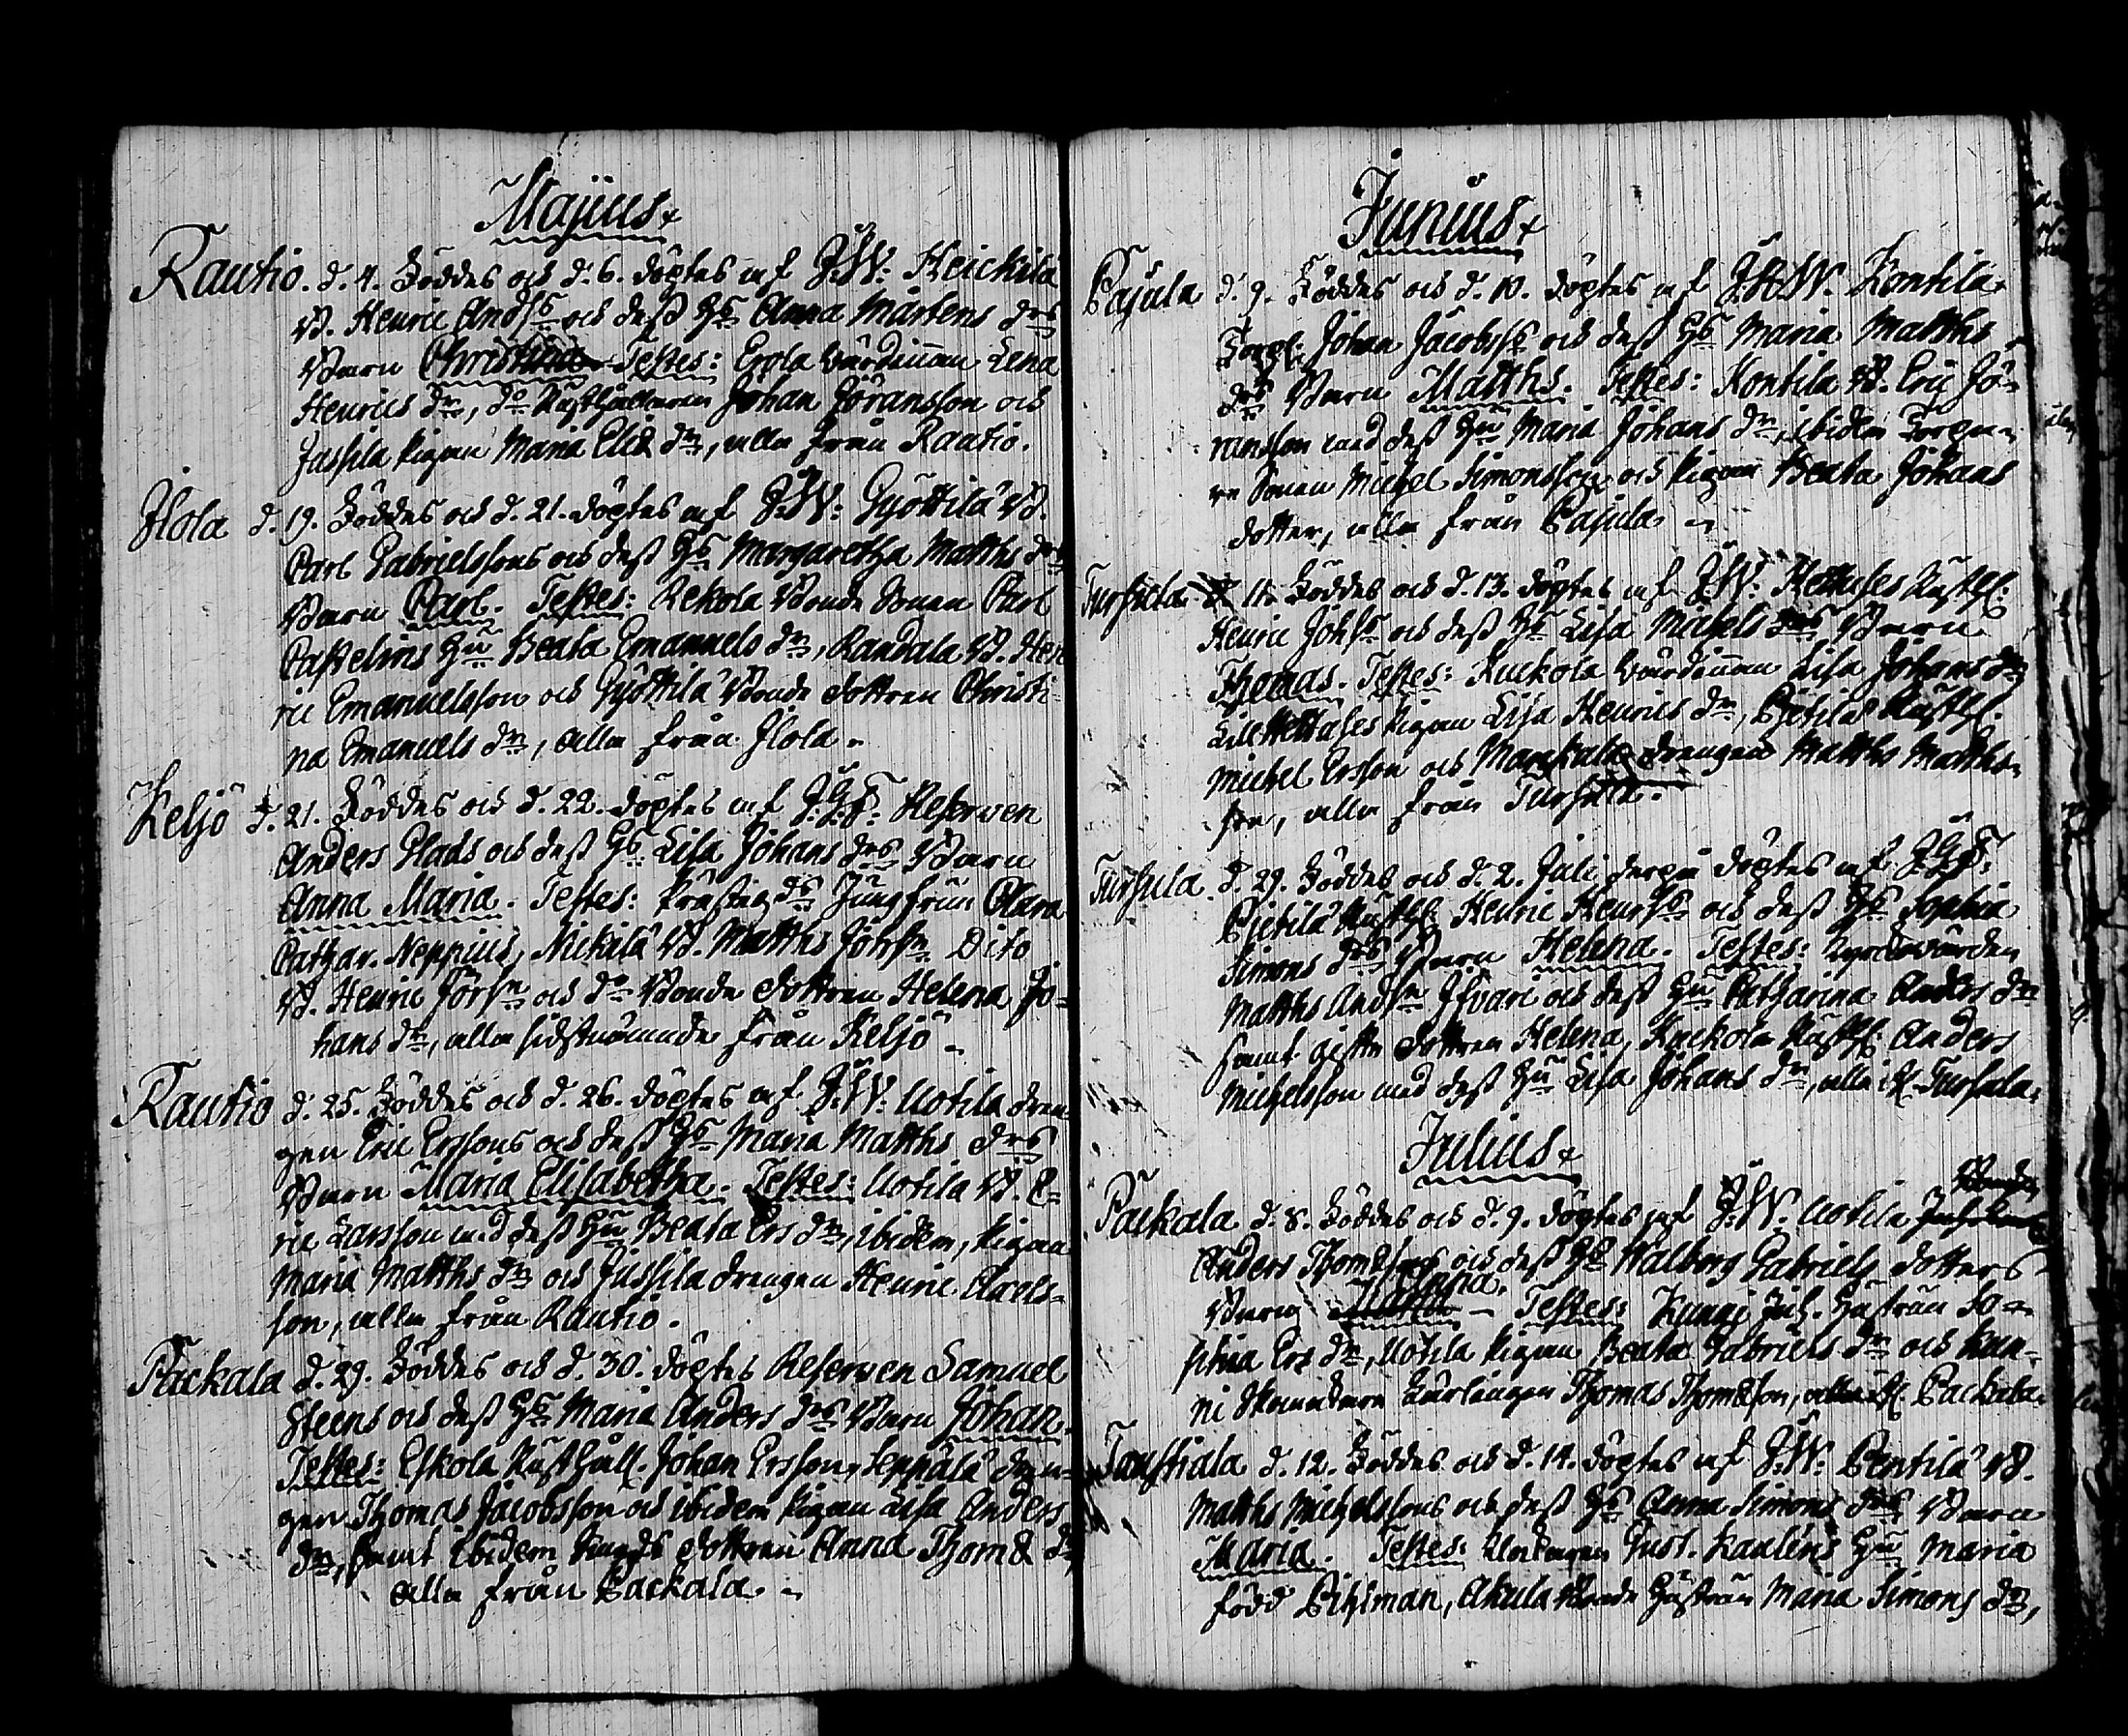 Majus
Rautio. d. 4. Föddes och d. 6. döptes af J.W: Heickilä
B. Henric Andss och dess Hs Anna Mårtens drs
Barn Christina. Testes: Erola Värdinnan Lena
Henrics dr, do Rusthållaren Johan Jöransson och
Jussila Pigan Maria Elis dr, alla från Rautio.
Ilola d. 19. Föddes och d. 21. döptes af J.W: Gyöttilä B.
Carl Gabrielssons och dess Hs Margaretha Matths drs
Barn Carl. Testes: Rekola Bonde Sonen Carl
Castelins Hu Beata Emanuels dr, Randala B. Hen
ric Emanuelsson och Gyöttilä Bonde dottren Christi-
na Emanuels dr, alla från Ilola.
Keljo d. 21. Föddes och d. 22. döptes af J.G.F: Reserven
Anders Glads och dess Hs Lisa Johans drs Barn
Anna Maria. Testes: Jungfrun Clara
Cathar. Neppius, Nickilä B. Matths Jörsn. Dito
B. Henric Jörsn och do Bonde dottren Helena Jo-
hans dr, alla sidstnämnde från Keljo
Rautio d. 25. Föddes och d. 26. döptes af J.W: Uotila dren-
gen Eric Erssons och dess Hs Maria Matths drs
Barn Maria Elisabetha. Testes: Uotila B. E-
ric Larsson med dess Hu Beata Ers dr, ibidem, Pigan
Maria Matths dr och Jussila drengen Henric Carls-
son, alla från Rautio.
Packala d. 29. Föddes och d. 30. döptes Reserven Samuel
Steens och dess Hs Maria Anders drs Barn Johan.
Testes: Eskola Rusthåll. Johan Ersson, Seppälä dren-
gen Thomas Jacobsson och ibidem Pigan Lisa Anders
dr, samt ibidem dottren Anna Thoms dr
alla från Packala.
Junius
Pajula d. 9. Föddes och d. 10. döptes af J.W. Kontila
Torp. Johan Jacobss och dess Hs Maria Matths
drs Barn Matths. Testes: Kontila B. Eric Jö-
ransson med dess Hu Maria Johans dr, ibidem Torpa-
re Sonen Michel Simonsson och Pigan Beata Johans
dotter, alla från Pajula
Tursula d. 11. Föddes och d. 13. döptes af J.W: Rusth:
Henric Johss och dess Hs Lisa Michels drs Barn
Thomas. Testes: Kuckola Värdinnan Lisa Johans dr
Pigan Lisa Henrics dr, Pietilä Rusth.
Michel Ersson och drengen Matths Matths-
son, alla från Tursula.
Tursula. d. 29. Föddes och d. 2. Juli derpå döptes af J.G.F:
Pietilä Rusth: Henric Henrss och dess Hs Sophia
Simons drs Barn Helena. Testes: Kyrckovärden
Matths Andsn Isvari och dess Hu Catharina Anders dr
samt dottren Helena, Kuckola Rusth: Anders
Michelsson med dess Hu Lisa Johans dr, alla i Tursula.
Julius
Packala d. 8. Föddes och d. 9. döptes af J.W: Uotila
Anders Thomssons och dess Hs Walborg Gabriels dotters
Barn Testes: Hustrun So-
phia Ers dr, Uotila Pigan Beata Gabriels dr och
ni Thomas Thomsson, alla fr. Packala.
Taustiala d. 12. Föddes och d. 14. döptes af J.W: Pentilä B.
Matths Michelssons och dess Hs Anna Simons drs Barn
Maria. Testes: Klockaren Gust. Kauléns Hu Maria
född Bihlman, Akula Bonde Hustrun Maria Simons dr,